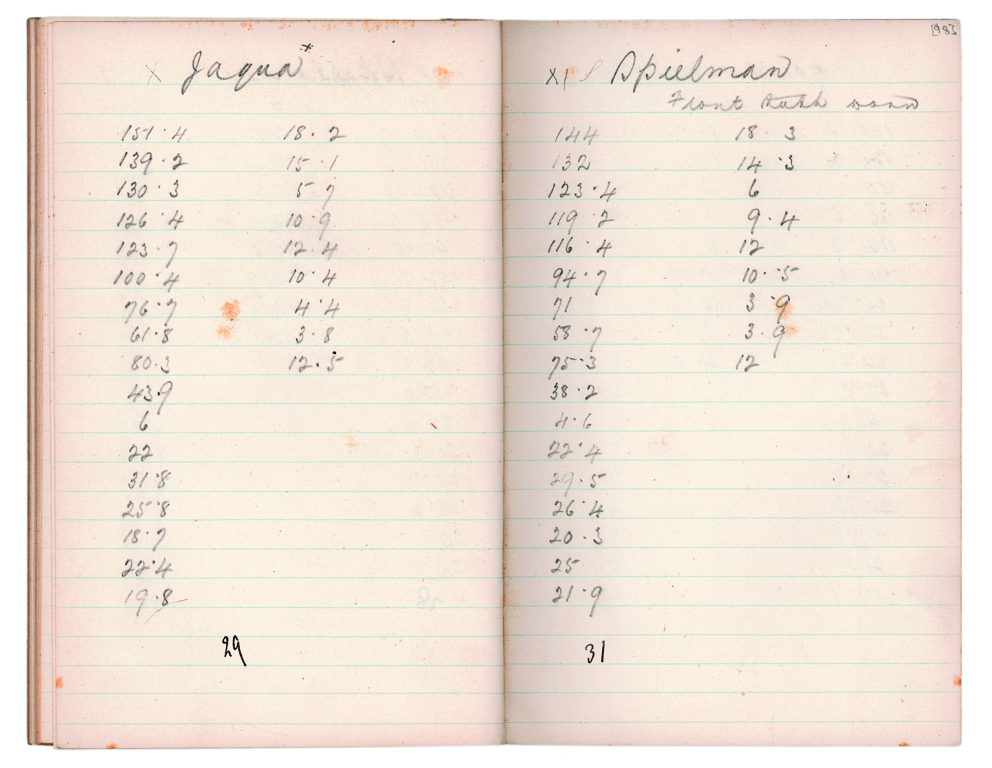 x Jaqua*
151·4 18·2
139·2 15·1
130·3 5·7
126·4 10·9
123·7 12·4
100·4 10·4
76·7 4·4
61·8 3·8
80·3 12·5
43·9
6
22
31·8
25·8
18·7
22·4
19·8
29
1983
x1 S Spielman
Front teeth worn
144 18·3
132 14·3
123·4 6
119·2 9·4
116·4 12
94·7 10·5
71 3·9
58·7 3·9
75·3 12
38·2
4·6
22·4
29·5
26·4
20·3
25
21·9
31